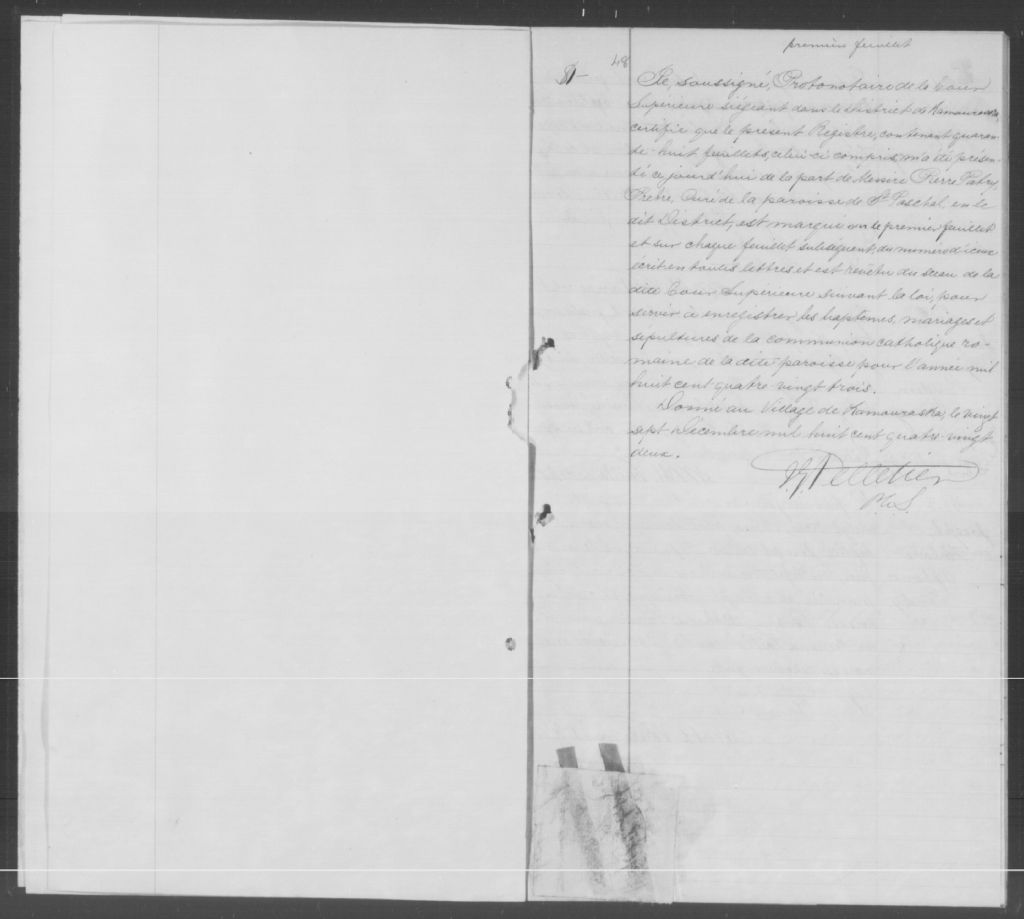 premier feuillet
48
Je, soussigné, Protonotaire de la Cour
Supérieure siégeant dans le District de Kamouraska,
certifie que le présent Registre, contenant quaran-
te-huit feuillets, celui-ci compris, m'a été présen-
té ce jourd'hui de la part de Messire Pierre Patry,
Prêtre, Curé de la paroisse de St Paschal, en le
dit District, est marqué sur le premier feuillet
et sur chaque feuillet subséquent, du numéro d'iceux
écrit en toutes lettres et est revêtu du sceau de la
dite Cour Supérieure suivant la loi, pour
servir à enregistrer les baptêmes, mariages et
sépultures de la communion catholique ro-
maine de la dite paroisse pour l'année mil
huit cent quatre-vingt trois.
Donné au Village de Kamouraska, le vingt
sept Décembre mil huit cent quatre-vingt
deux.
Pelletier
P.C.S.